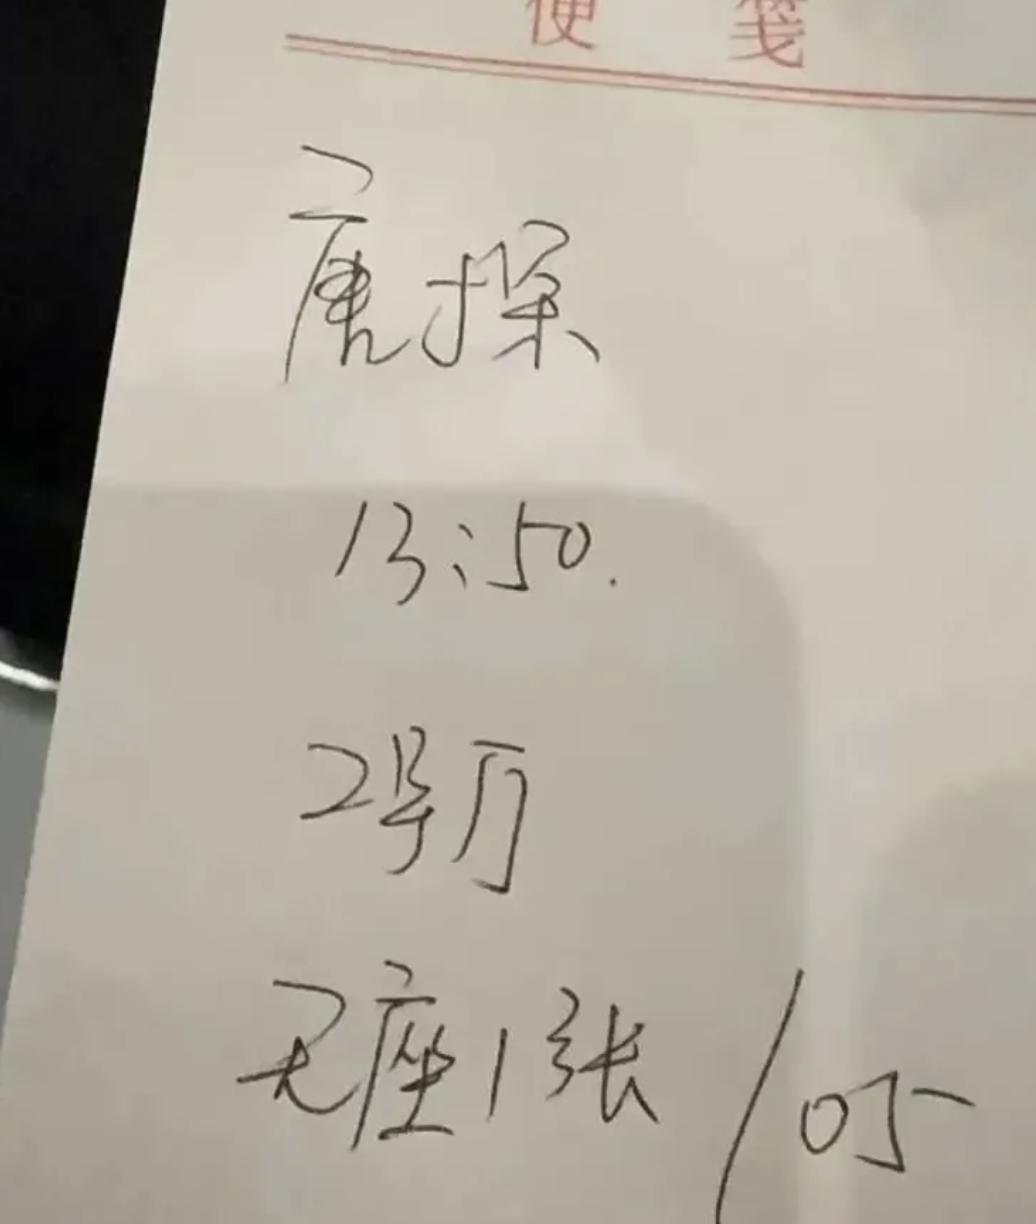 便 笺
唐探
13:50.
2号厅
无座1张 /05